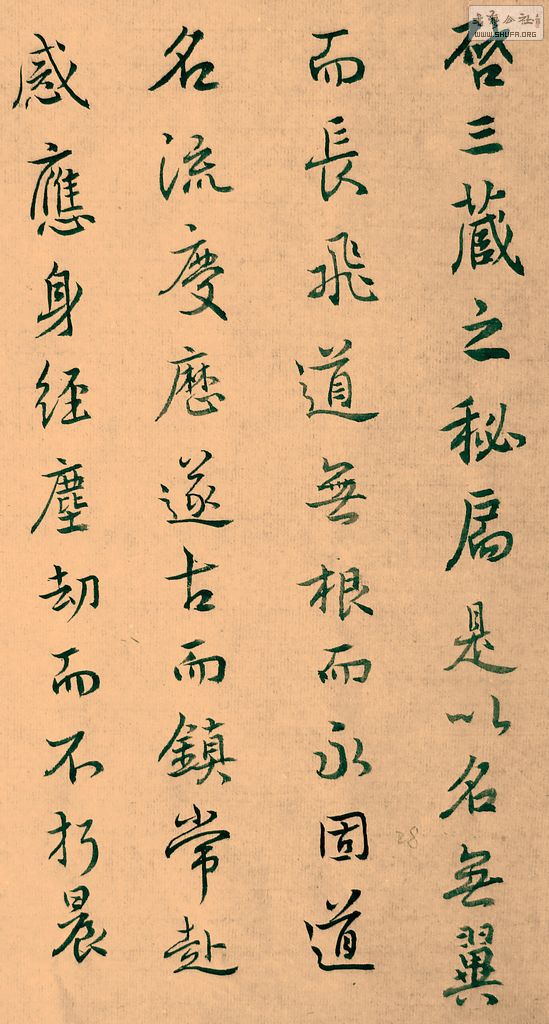 啓三藏之秘扃是以名無翼
而長飛道無根而永固道
名流慶歷遂古而鎮常赴
感應身經塵劫而不朽晨
28
公社
WWW.SHUFA.ORG